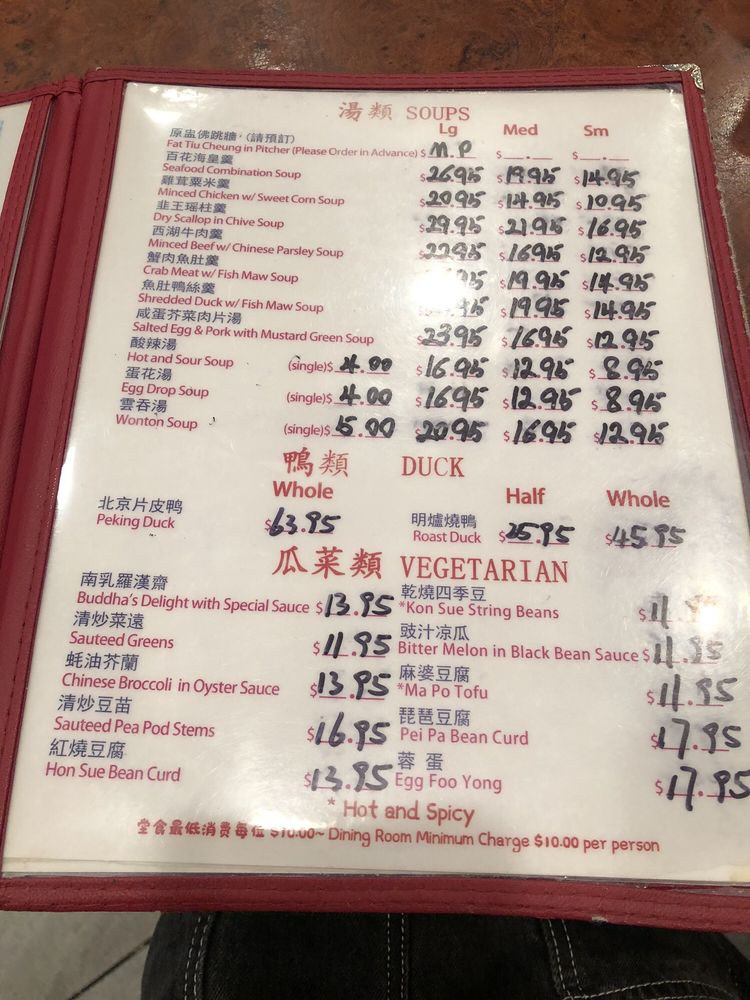 湯類 SOUPS
Lg Med Sm
原盅佛跳牆 (請預訂)
Fat Tiu Cheung in Pitcher (Please Order in Advance) $ M.P $ . $ .
百花海皇羹
Seafood Combination Soup $26.95 $19.95 $14.95
雞茸粟米羹
Minced Chicken w/ Sweet Corn Soup $20.95 $14.95 $10.95
韭王瑶柱羹
Dry Scallop in Chive Soup $29.95 $21.95 $16.95
西湖牛肉羹
Minced Beef w/ Chinese Parsley Soup $22.95 $16.95 $12.95
蟹肉魚肚羹
Crab Meat w/ Fish Maw Soup $19.95 $14.95
魚肚鴨絲羹
Shredded Duck w/ Fish Maw Soup $19.95 $14.95
咸蛋芥菜肉片湯
Salted Egg & Pork with Mustard Green Soup $23.95 $16.95 $12.95
酸辣湯
Hot and Sour Soup (single)$ 4.00 $16.95 $12.95 $8.95
蛋花湯
Egg Drop Soup (single)$ 4.00 $16.95 $12.95 $8.95
雲吞湯
Wonton Soup (single)$ 5.00 $20.95 $16.95 $12.95
鴨類 DUCK
Whole Half Whole
北京片皮鸭 明爐燒鴨
Peking Duck $63.95 Roast Duck $25.95 $45.95
瓜菜類 VEGETARIAN
南乳羅漢齋
Buddha's Delight with Special Sauce $13.95
清炒菜遠
Sauteed Greens $11.95
蚝油芥蘭
Chinese Broccoli in Oyster Sauce $13.95
清炒豆苗
Sauteed Pea Pod Stems $16.95
紅燒豆腐
Hon Sue Bean Curd $13.95
乾燒四季豆
*Kon Sue String Beans $11.95
豉汁凉瓜
Bitter Melon in Black Bean Sauce $11.95
麻婆豆腐
*Ma Po Tofu $11.95
琵琶豆腐
Pei Pa Bean Curd $17.95
蓉 蛋
Egg Foo Yong $17.95
* Hot and Spicy
堂食最低消费每位 $10.00~ Dining Room Minimum Charge $10.00 per person